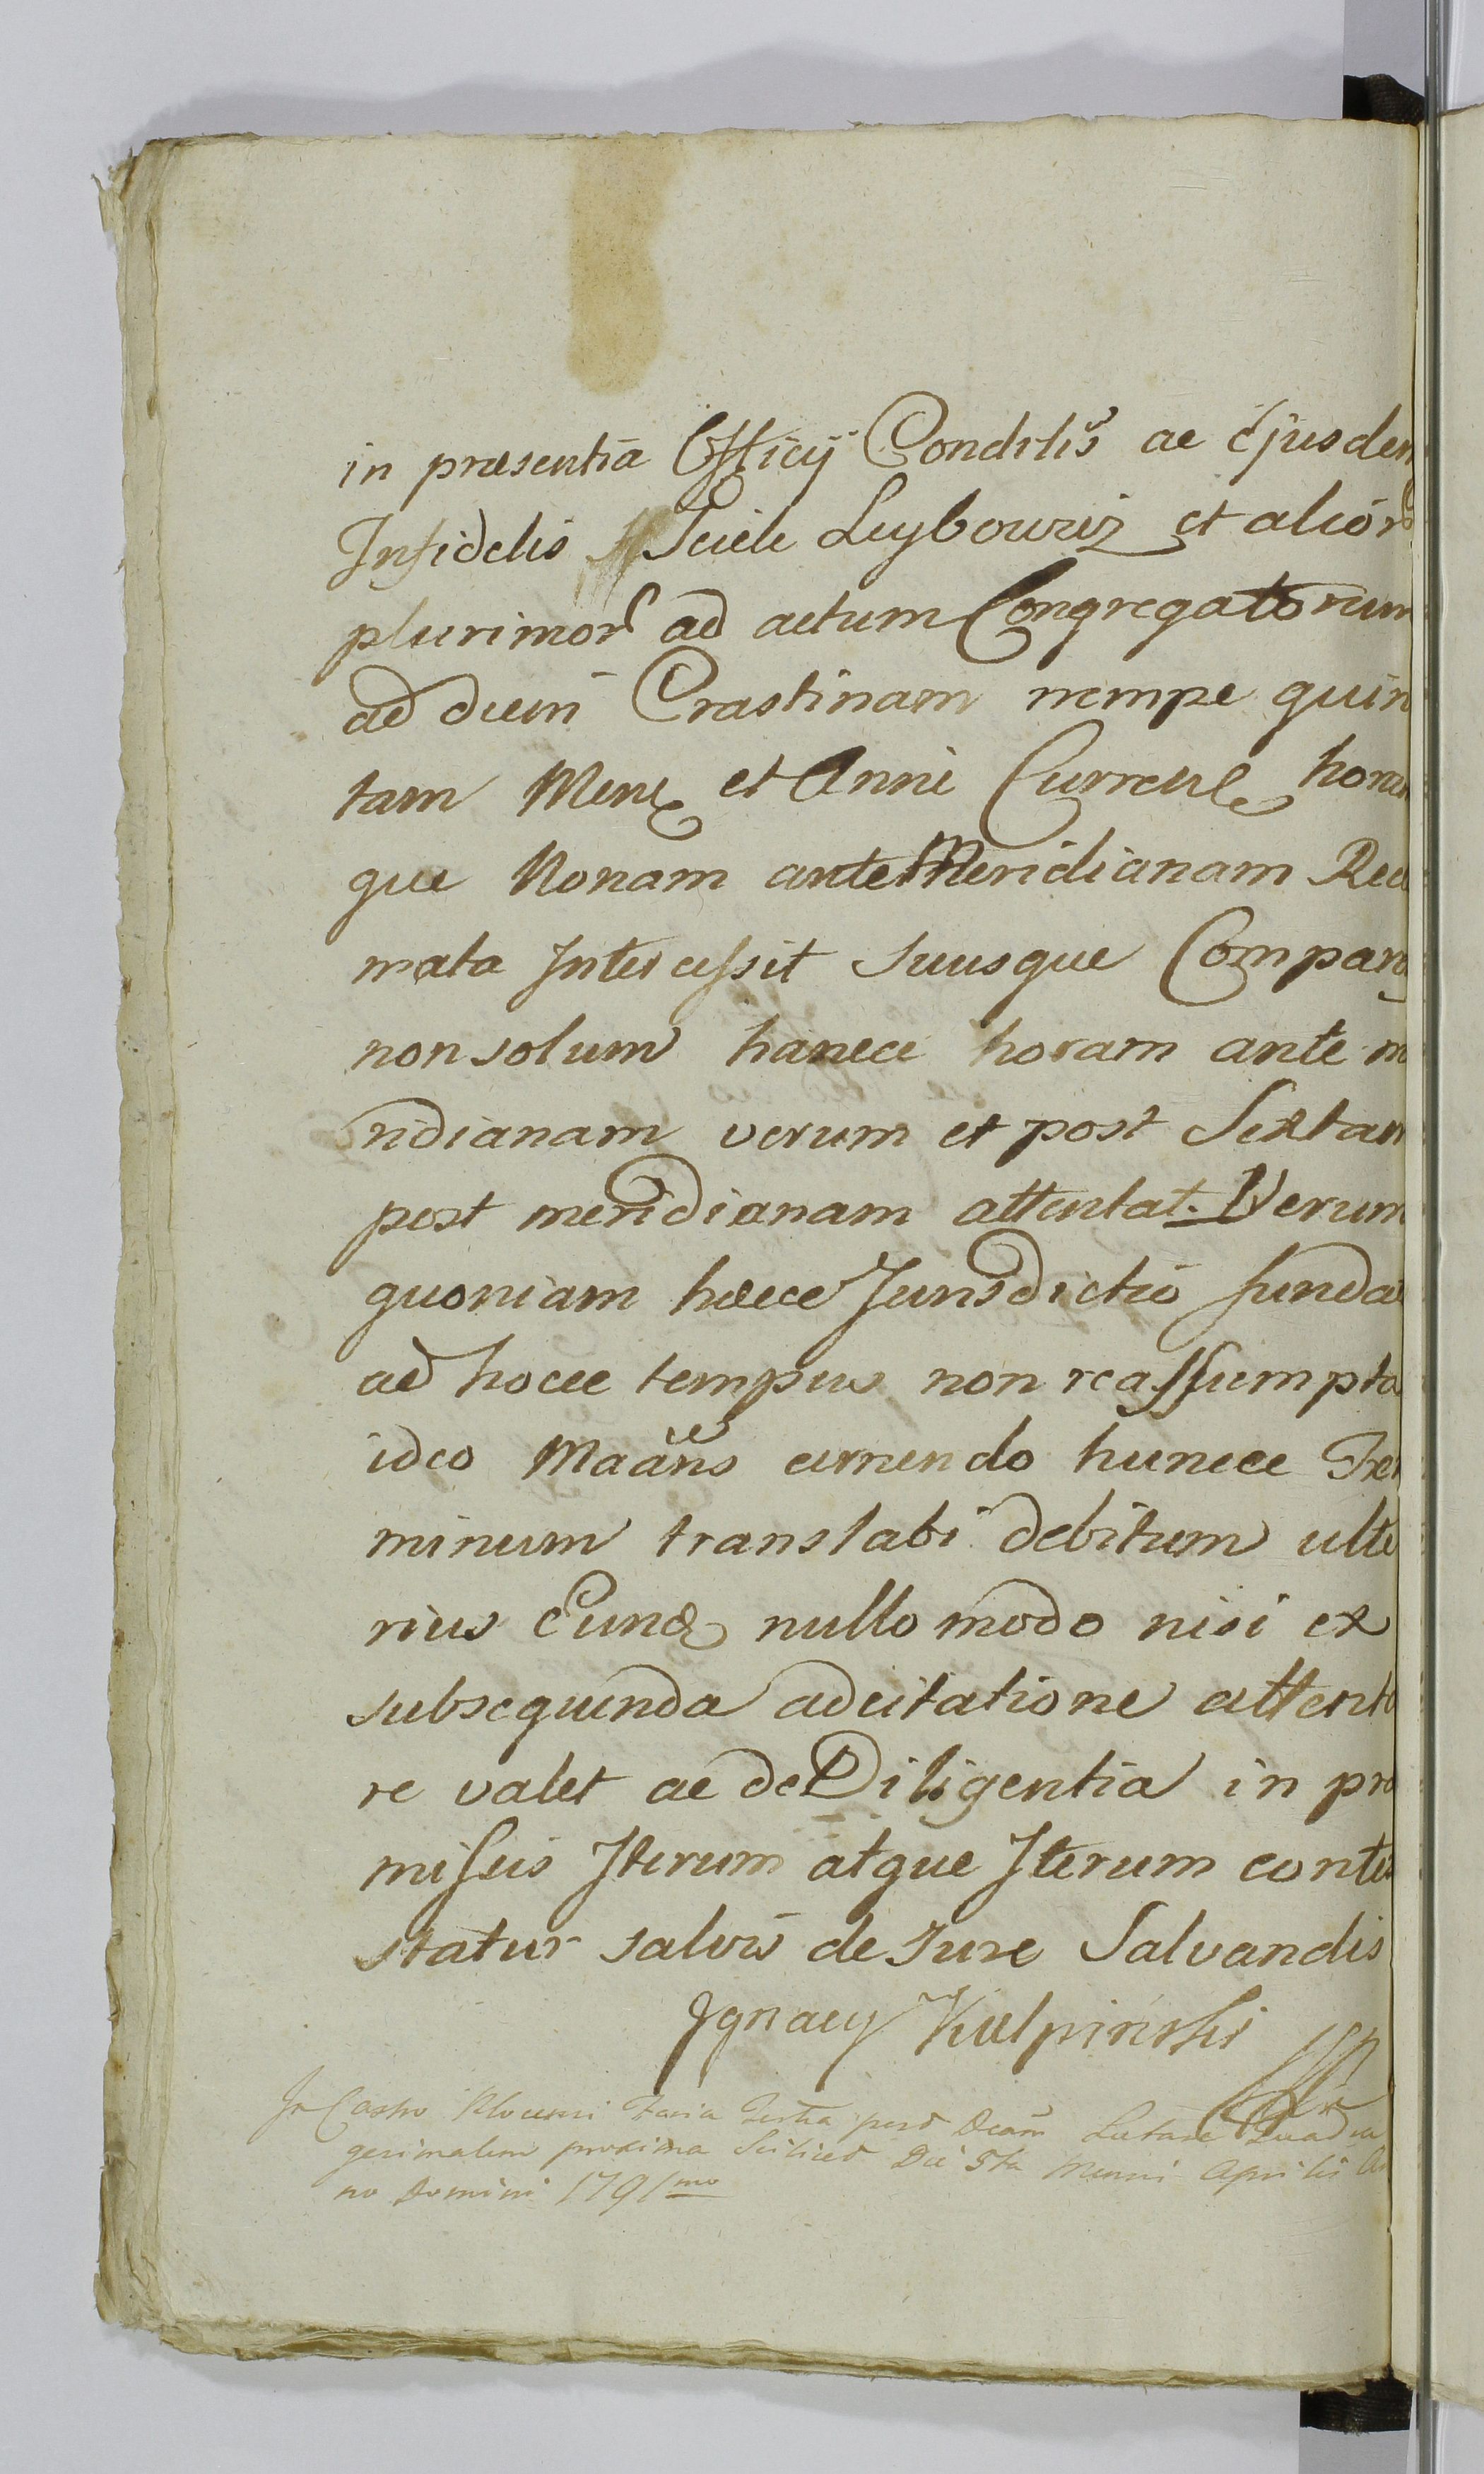 in præsentia Officij Condilis ac ejusdem
Infidelis Leybowicz et alior
plurimor ad actum Congregatorum
ad diem Crastinam nempe quin
tam Mens et Anni Curren horam
que Nonam anteMeridianam Recla
mata Intercessit suusque Compars
non solum hancce horam ante m
ridianam verum et post Sextam
post meridianam attentat. Verum
quoniam hæcce Jurisdictio funda
ad hocce tempus non reassumpta
ideo Maãns cernendo huncce Ter
minum translabi debitum ulte
rius Eund nullo modo nisi ex
subsequenda adcitatione attenta
re valet ac de Diligentia in præ
missis Iterum atque Iterum conte
statur salvis de Jure Salvandis
Ignacy Kulpiński
In Castro Kloven Feria Tertia post Dcam Lætare Quadra
gesimalem proxima Scilicet Die 5ta Mensis Aprilis An
no Domini 1791mo